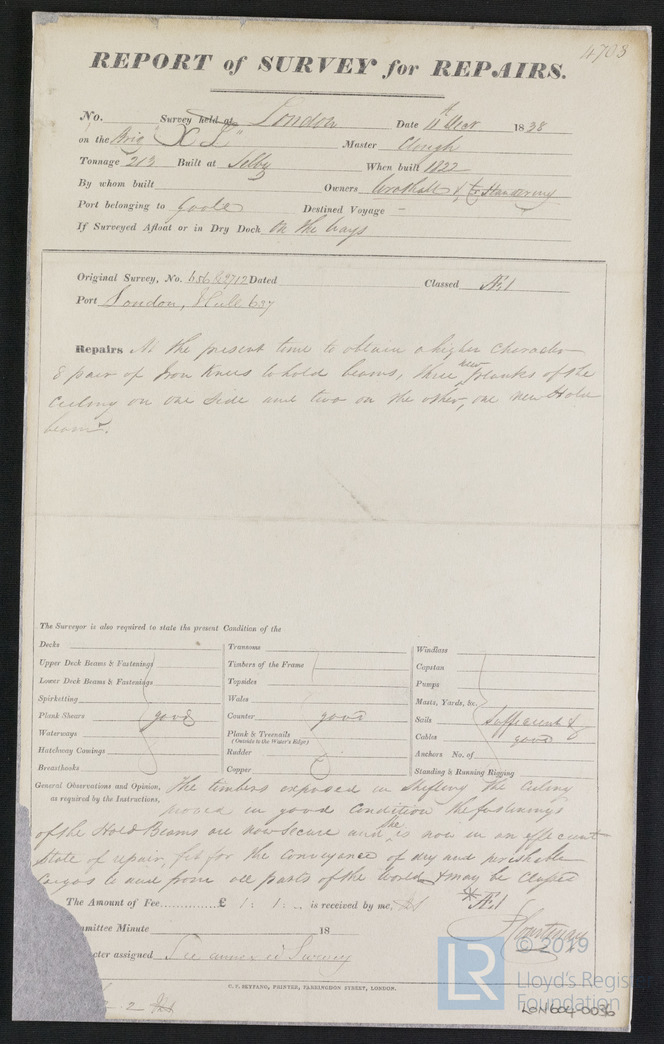 4703
REPORT of SURVEY for REPAIRS.
No. Survey held at London Date 11 Decr 1838
on the Brig "X L" Master Clough
Tonnage 213 Built at Selby When built 1822
By whom built Owners &
Port belonging to Goole Destined Voyage -
If Surveyed Afloat or in Dry Dock On the ways
Original Survey, No. Dated Classed Æ1
Port London, Hull 637
Repairs At the present time to obtain a higher character
8 pair of Iron Knees to hold beams, three new planks of the
Ceiling on one side and two on the other, one new Hold
beam.
The Surveyor is also required to state the present Condition of the
Decks
Upper Deck Beams & Fastenings
Lower Deck Beams & Fastenings
Spirketting
Plank Shears good
Waterways
Hatchway Comings
Breasthooks
Transoms
Timbers of the Frame
Topsides
Wales
Counter good
Plank & Treenails
(Outside to the Water's Edge)
Rudder
Copper
Windlass
Capstan
Pumps
Masts, Yards, &c.
Sails Sufficient &
Cables good
Anchors No. of
Standing & Running Rigging
General Observations and Opinion, The timbers exposed in shifting the Ceiling
as required by the Instructions, proved in good Condition the fastenings
of the Hold Beams are now secure and she is now in an efficient
State of repair, fit for the conveyance of dry and perishable
Cargos to and from all parts of the World & may be classed
The Amount of Fee £ 1: 1: .. is received by me, * Æ1
mmittee Minute 18
cter assigned See annexed Survey
C. F. SEYFANG, PRINTER, FARRINGDON STREET, LONDON.
© 2019
LR
Lloyd's Register
Foundation
LON604-0036